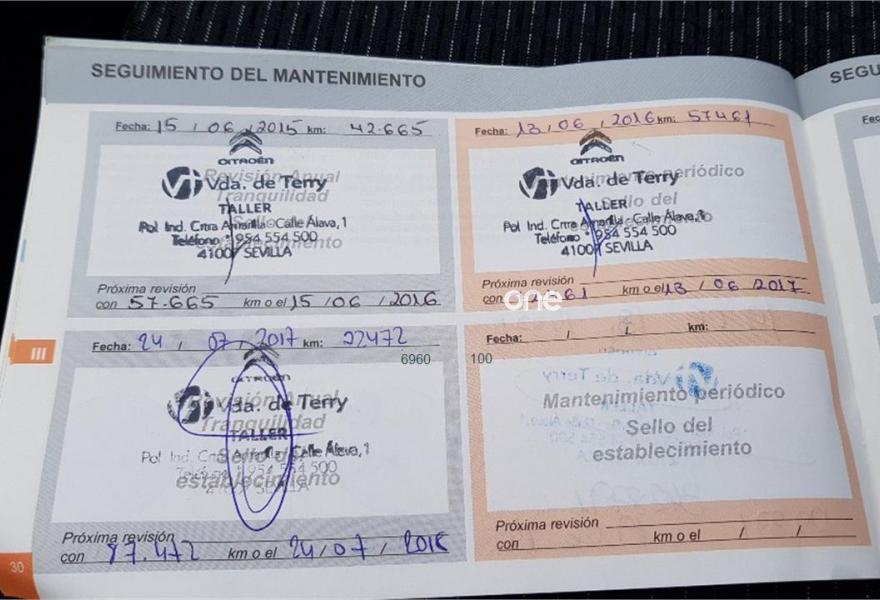 SEGUIMIENTO DEL MANTENIMIENTO
SEGU
Fecha: 15 / 06 / 2015 km: 42.665
CITROËN
Revisión Anual
Vda. de Terry
Tranquilidad
TALLER
Pol. Ind. Crtra Amarilla Calle Álava, 1
Teléfono * 954 554 500
41007 SEVILLA
Próxima revisión
con 57.665 km o el 15 / 06 / 2016
Fecha: 13 / 06 / 2016 km: 57461
CITROËN
Mantenimiento periódico
Vda. de Terry
Sello del
TALLER
Pol. Ind. Crtra Amarilla Calle Álava, 1
establecimiento
Teléfono * 954 554 500
41007 SEVILLA
Próxima revisión
con km o el 13 / 06 / 2017
one
Fecha: 24 / 07 / 2017 km:
CITROËN
Revisión Anual
Vda. de Terry
Tranquilidad
TALLER
Pol. Ind. Crtra Amarilla Calle Álava, 1
Sello del
Teléfono * 954 554 500
establecimiento
41007 SEVILLA
Próxima revisión
con 87.472 km o el 24 / 07 / 2018
6960 100
Fecha: / / km:
Mantenimiento periódico
Sello del
establecimiento
Próxima revisión
con km o el / /
III
30